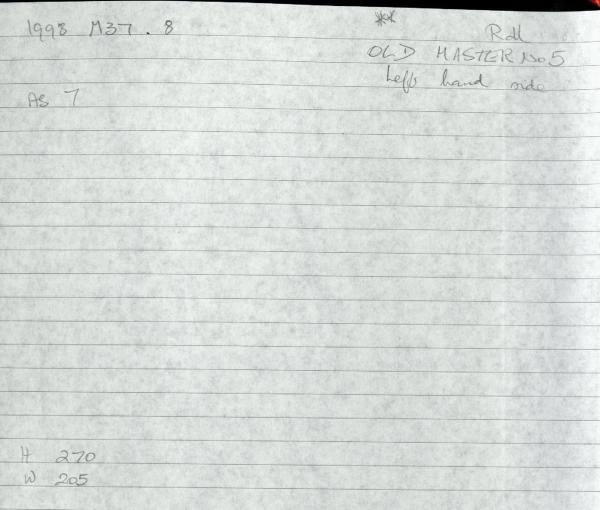 1998 M37.8
Roll
OLD MASTER No 5
Left hand side
AS 7
H 270
W 205